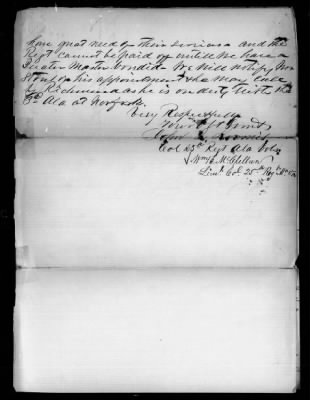 have great need of their services and the
Regt cannot be paid off untill we have a
Quarter Master bonded We will notify Mr
of his appointment & he may
by Richmond as he is on duty with the
3d Ala at Norfolk
Very Respectfully
Your Obt Servts
John Q. Loomis
Col 25th Regt Ala Vols
Wm B. McClellan
Lieut. Col. 25th Regt Ala Vols